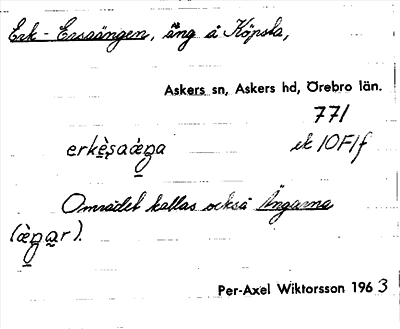 Erk-Ersaängen, äng å Köpsta,
Askers sn, Askers hd, Örebro län.
771
ek 10F1f
Området kallas också Ängarna
Per-Axel Wiktorsson 1963